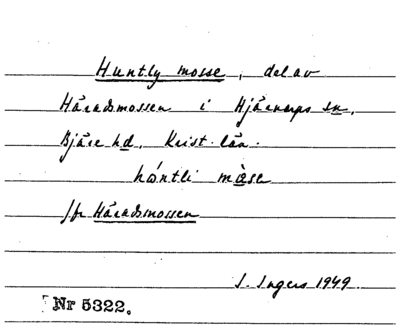 Huntly mosse, del av
Häradsmossen i Hjärnarps sn,
Bjäre hd, Krist. län.
hǿntli mɑ̀se
Jfr Häradsmossen
I. Ingers 1949.
Nr 5322.